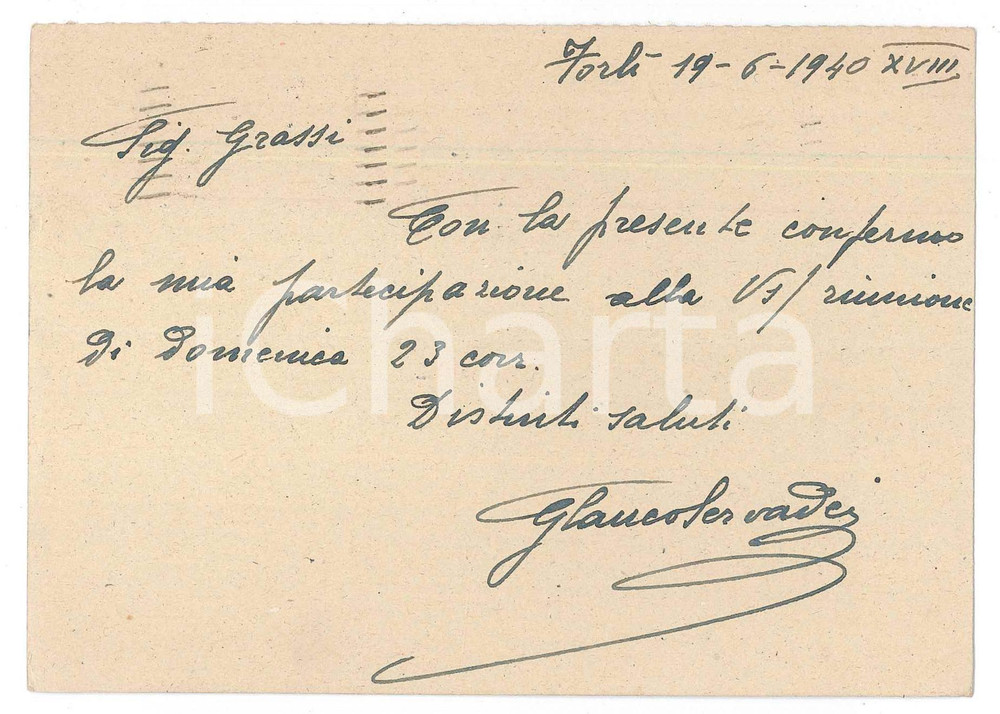 Forlì 19-6-1940 XVIII
Sig. Grassi
Con la presente confermo
la mia partecipazione alla Vs/ riunione
di Domenica 23 corr.
Distinti saluti
Glauco Servadei
iCharta